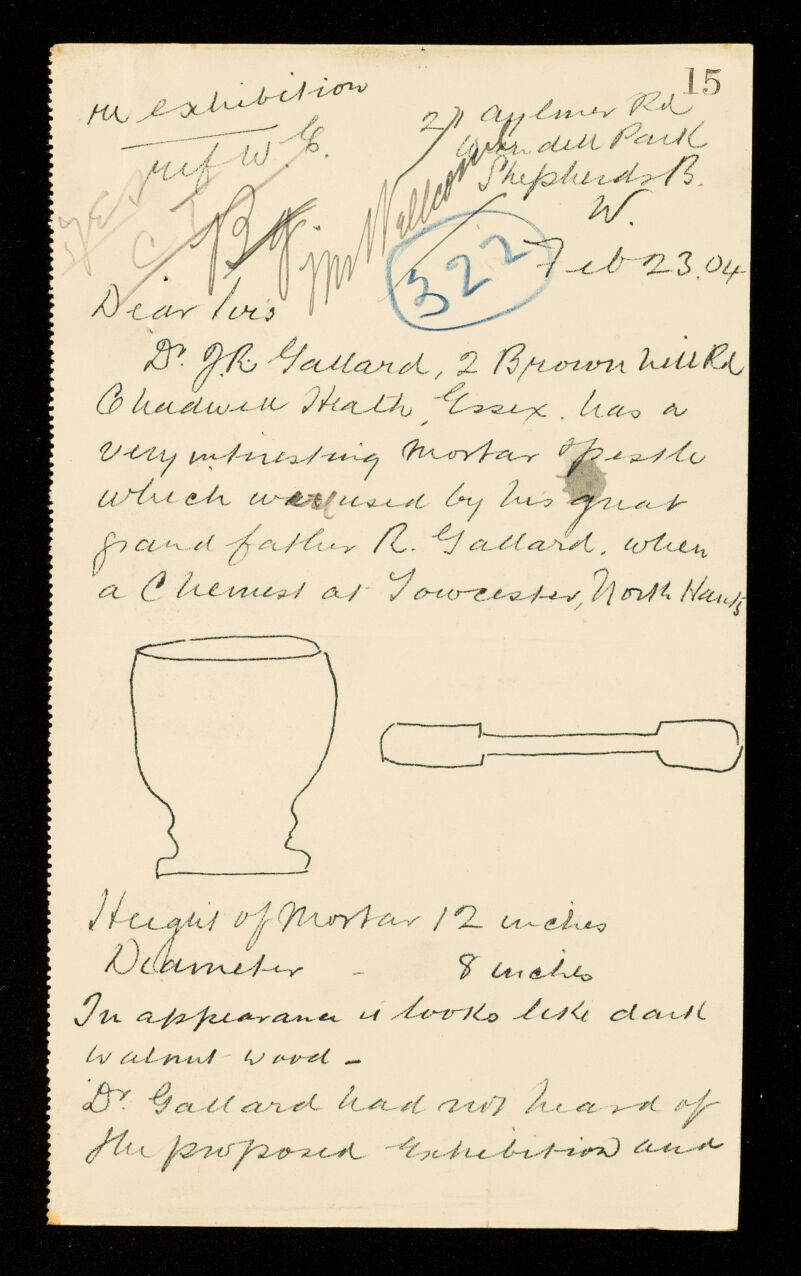 15
re exhibition
ref W E.
27 Aylmer Rd
Wendell Park
Shepherds B.
W.
Mr Wellcome
322
Feb 23.04
Dear Sirs
Dr. J.R. Gallard, 2 Brownhill Rd
Chadwell Heath, Essex. has a
very interesting Mortar & pestle
which was used by his great
grand father R. Gallard. when
a Chemist at Towcester, North Hants
Height of Mortar 12 inches
Diameter - 8 inches
In appearance it looks like dark
walnut wood -
Dr. Gallard had not heard of
the proposed Exhibition and